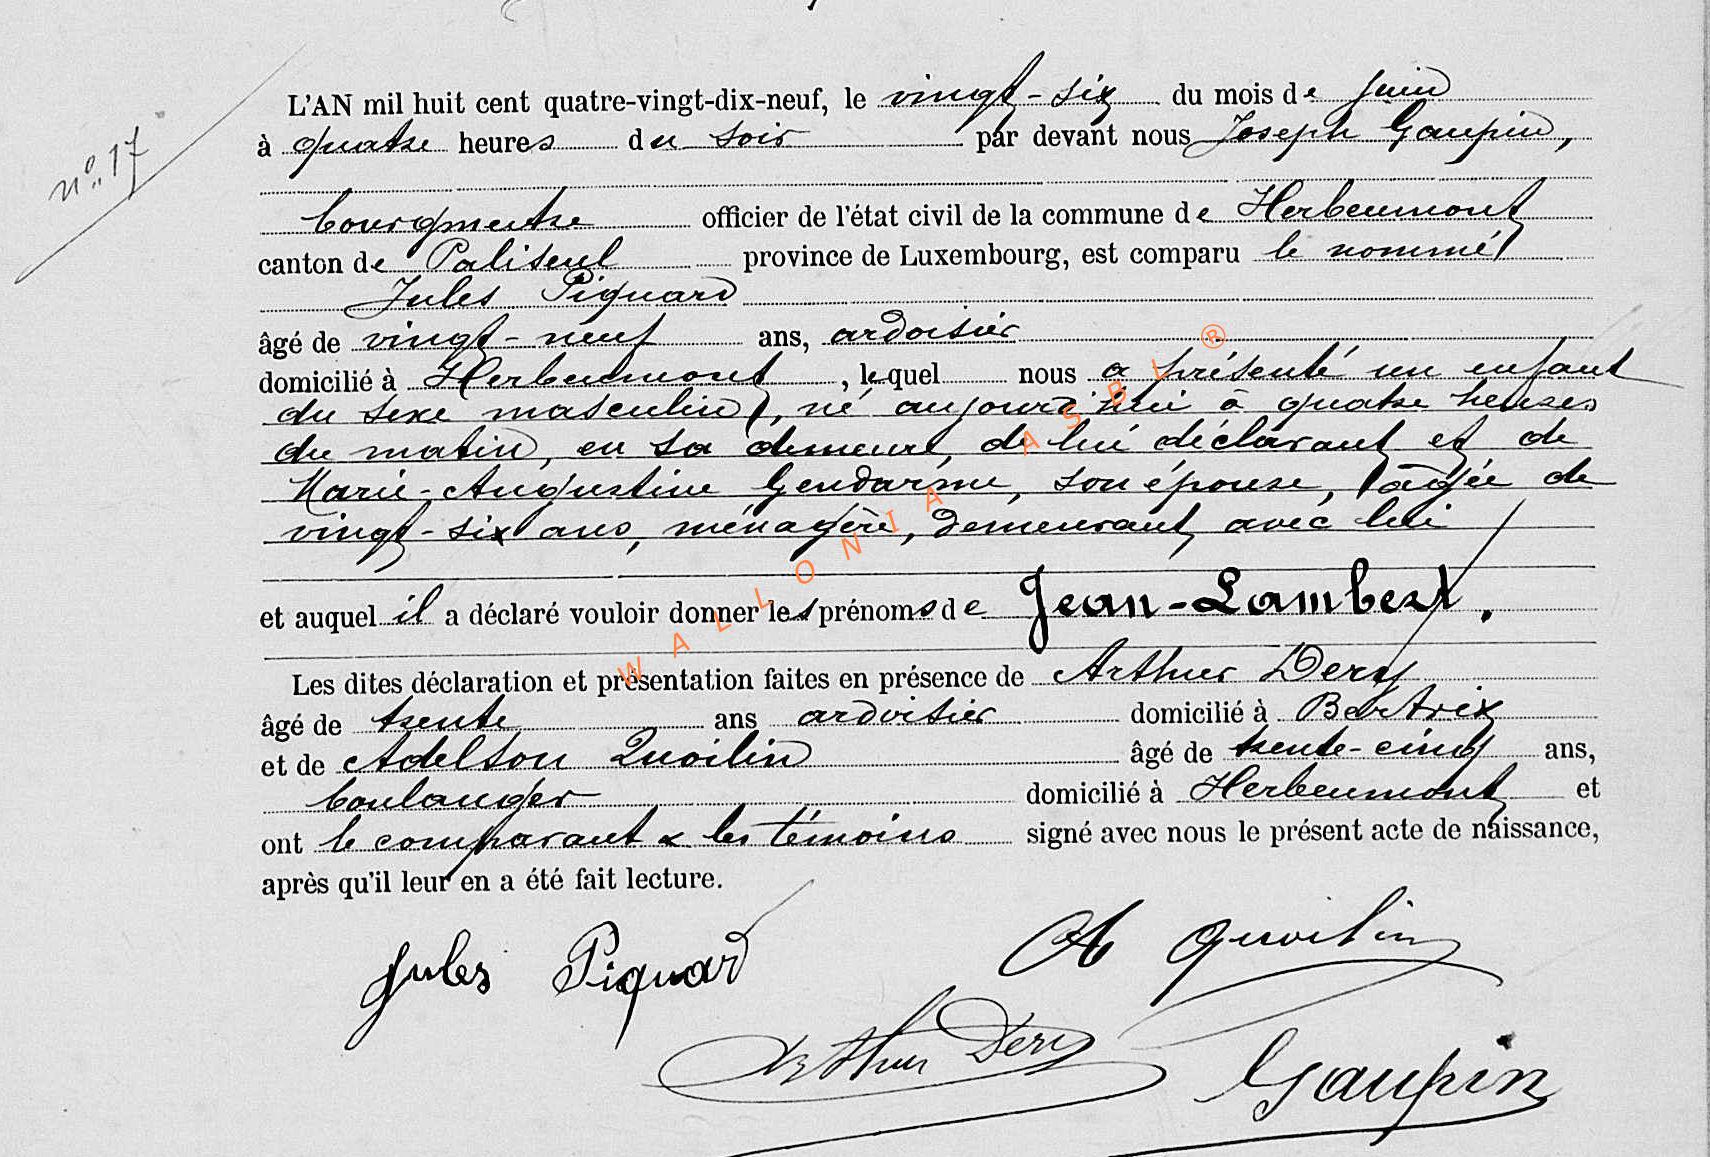 n° 17
L'AN mil huit cent quatre-vingt-dix-neuf, le vingt-six du mois de juin
à quatre heures du soir par devant nous Joseph Gaupin,
bourgmestre officier de l'état civil de la commune de Herbeumont
canton de Paliseul province de Luxembourg, est comparu le nommé
Jules Piquard
âgé de vingt-neuf ans, ardoisier
domicilié à Herbeumont, lequel nous a présenté un enfant
du sexe masculin, né aujourd'hui à quatre heures
du matin, en sa demeure, de lui déclarant et de
Marie-Augustine Gendarme, son épouse, âgée de
vingt-six ans, ménagère, demeurant avec lui
et auquel il a déclaré vouloir donner les prénoms de Jean-Lambert.
Les dites déclaration et présentation faites en présence de Arthur Dery
âgé de trente ans ardoisier domicilié à Bertrix
et de Adelson Quoilin âgé de trente-cinq ans,
boulanger domicilié à Herbeumont et
ont le comparant & les témoins signé avec nous le présent acte de naissance,
après qu'il leur en a été fait lecture.
Jules Piquard
A Quoilin
Arthur Dery
Gaupin
WALLONIA ASBL ®